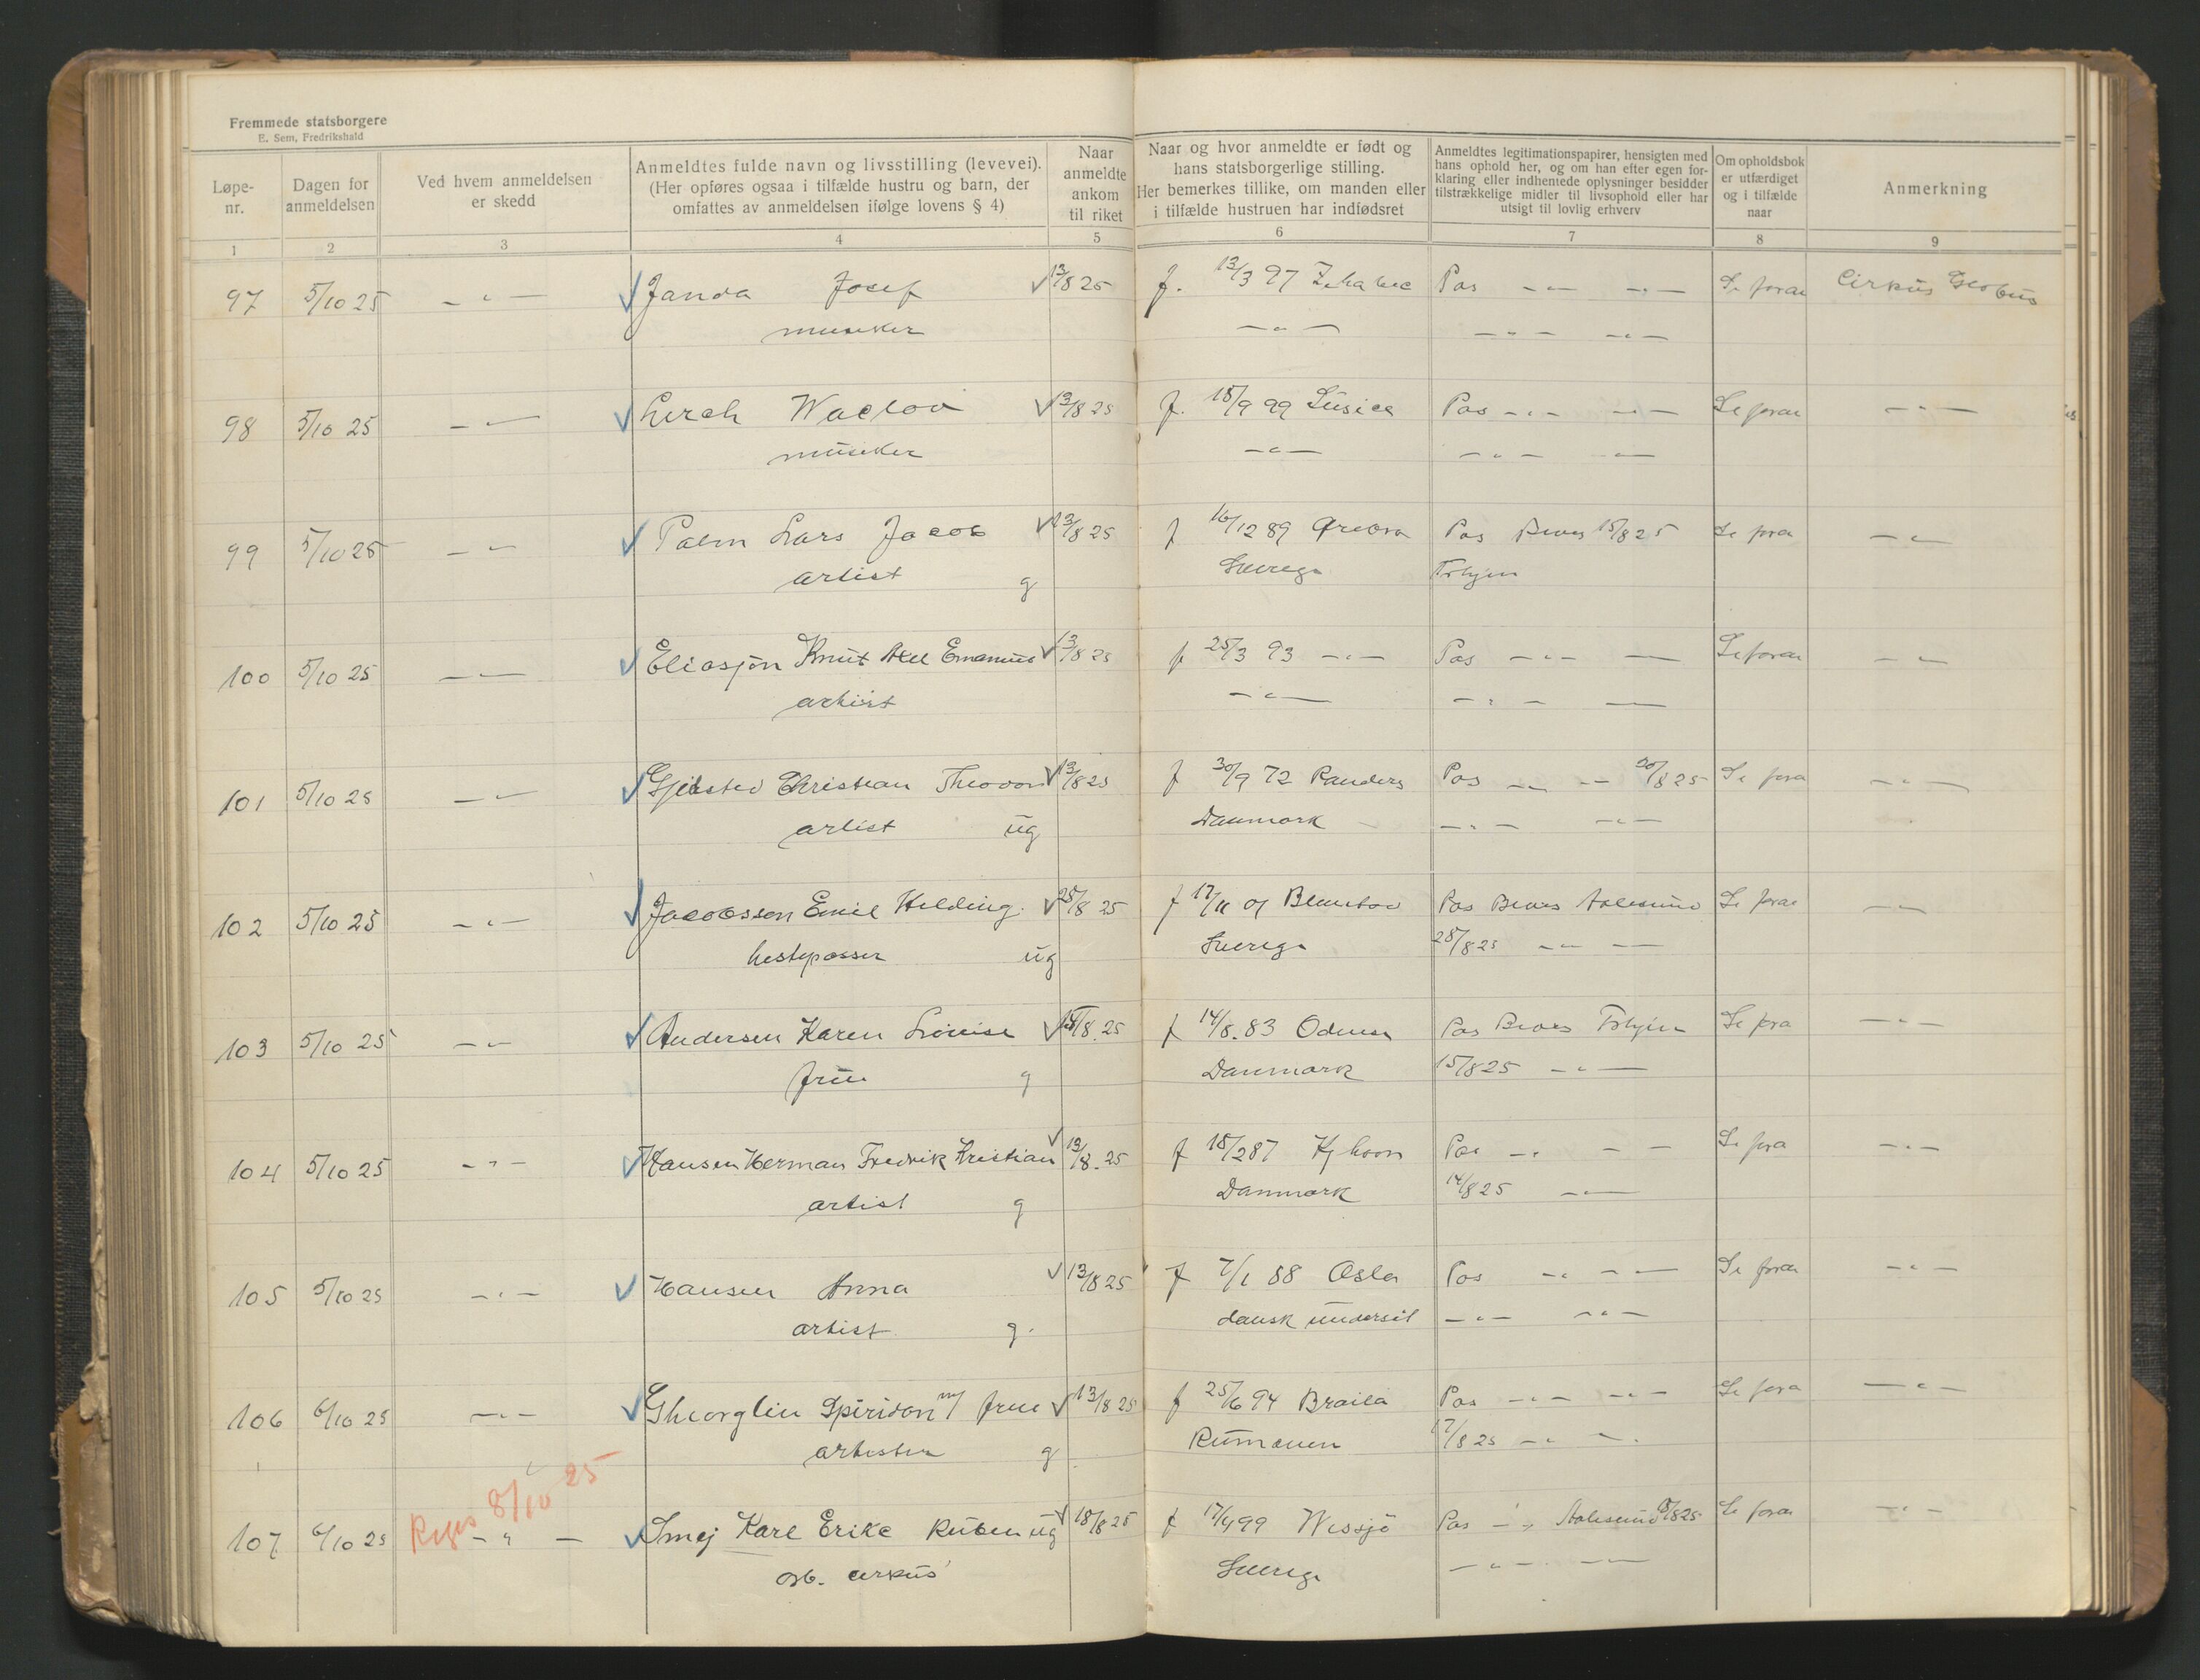 Fremmede statsborgere
E. Sem, Fredrikshald
Løpe-nr.
Dagen for anmeldelsen
Ved hvem anmeldelsen er skedd
Anmeldtes fulde navn og livsstilling (levevei).
(Her opføres ogsaa i tilfælde hustru og barn, der
omfattes av anmeldelsen ifølge lovens § 4)
Naar anmeldte ankom til riket
Naar og hvor anmeldte er født og
hans statsborgerlige stilling.
Her bemerkes tillike, om manden eller
i tilfælde hustruen har indfødsret
Anmeldtes legitimationspapirer, hensigten med
hans ophold her, og om han efter egen for-
klaring eller indhentede oplysninger besidder
tilstrækkelige midler til livsophold eller har
utsigt til lovlig erhverv
Om opholdsbok
er utfærdiget
og i tilfælde
naar
Anmerkning
1 2 3 4 5 6 7 8 9
97 5/10 25 — " — Janda Josef 13/8 25 f. 13/3 97 Pas — " — — " — Se foran Cirkus Globus
musiker — " — — " — — " —
98 5/10 25 — " — Lerch Waclav 13/8 25 f. 18/9 99 Pas — " — — " — Se foran — " —
musiker — " — — " — — " —
99 5/10 25 — " — Palm Lars Jacob 13/8 25 f 16/12 89 Pas Beves 15/8 25 Se fora — " —
artist g Sverige Trhjem
100 5/10 25 — " — Eliasson Knut Axel Emanuel 13/8 25 f 25/3 93 — " — Pas — " — — " — Se foran — " —
artist — " — — " — — " —
101 5/10 25 — " — Gjelsted Christian Theodor 13/8 25 f 30/9 72 Randers Pas — " — — " — 20/8 25 Se fora — " —
artist ug Danmark — " — — " —
102 5/10 25 — " — Jacobsson Emil Hilding 25/8 25 f 17/11 07 Pas Beves Aalesund Se foran — " —
hestepasser ug Sverige 28/8 25 — " — — " —
103 5/10 25 — " — Andersen Karen Louise 14/8. 25 f 14/8. 83 Odense Pas Beves Trhjem Se fora — " —
frue g Danmark 15/8 25 — " —
104 5/10 25 — " — Hansen Herman Fredrik Kristian 13/8. 25 f 18/2 87 Kjhavn Pas — " — — Se fora — " —
artist g Danmark 14/8 25 — " —
105 5/10 25 — " — Hansen Anna 13/8 25 f 7/1 88 Oslo Pas — " — — Se foran — " —
artist g. dansk undersåt — " — — " —
106 6/10 25 — " — Gheorgliu Spiridon m/ frue 13/8 25 f 25/6 94 Braila Pas — " — — " — Se fora — " —
artister g Rumænien 17/8 25 — " —
Reges 8/10 25
107 6/10 25 — " — Smej Karl Erike Ruben ug 18/8 25 f 17/4 99 Wessjö Pas — " — Aalesund Se foran — " —
arb. cirkus Sverige — " — — " —